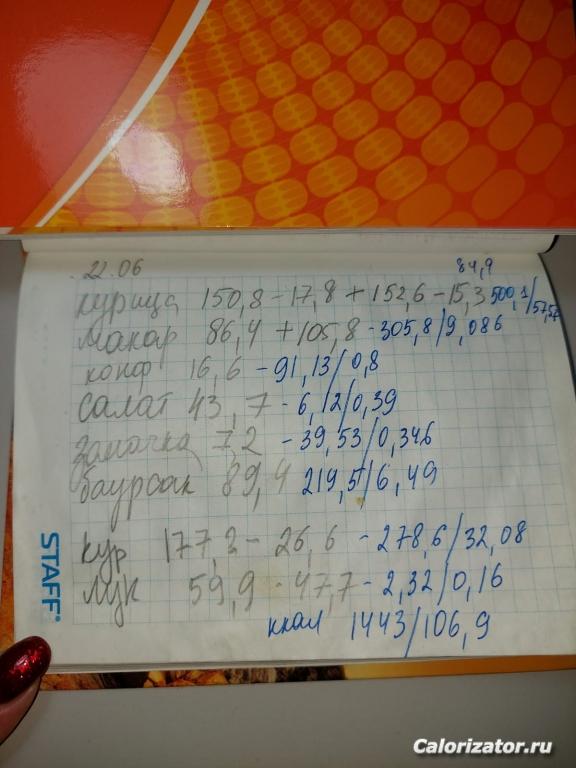 22.06 84,9
курица 150,8 - 17,8 + 152,6 - 15,3 500,1/57,57
макар 86,4 + 105,8 - 305,8/9,086
конф 16,6 - 91,13/0,8
салат 43,7 - 6,12/0,39
започка 7,2 - 39,53/0,346
баурсак 89,4 219,5/6,49
кур 177,2 - 26,6 - 278,6/32,08
лук 59,9 - 47,7 - 2,32/0,16
ккал 1443/106,9
STAFF
Calorizator.ru